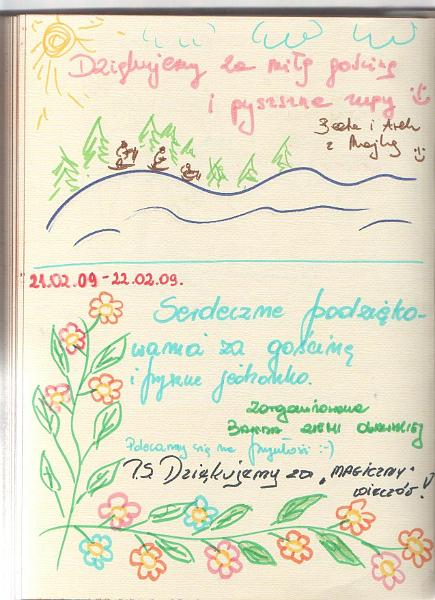 Dziękujemy za miłą gościnę
i pyszszne zupy :)
Beata i Arek
z Majką :)
21.02.09 - 22.02.09.
Serdeczne podzięko-
wania za gościnę
i pyszne jedzonko.
Zorganizowana
BANDA ZIEMI
Polecamy się na przyszłość :-)
P.S. Dziękujemy za "MAGICZNY"
wieczór!